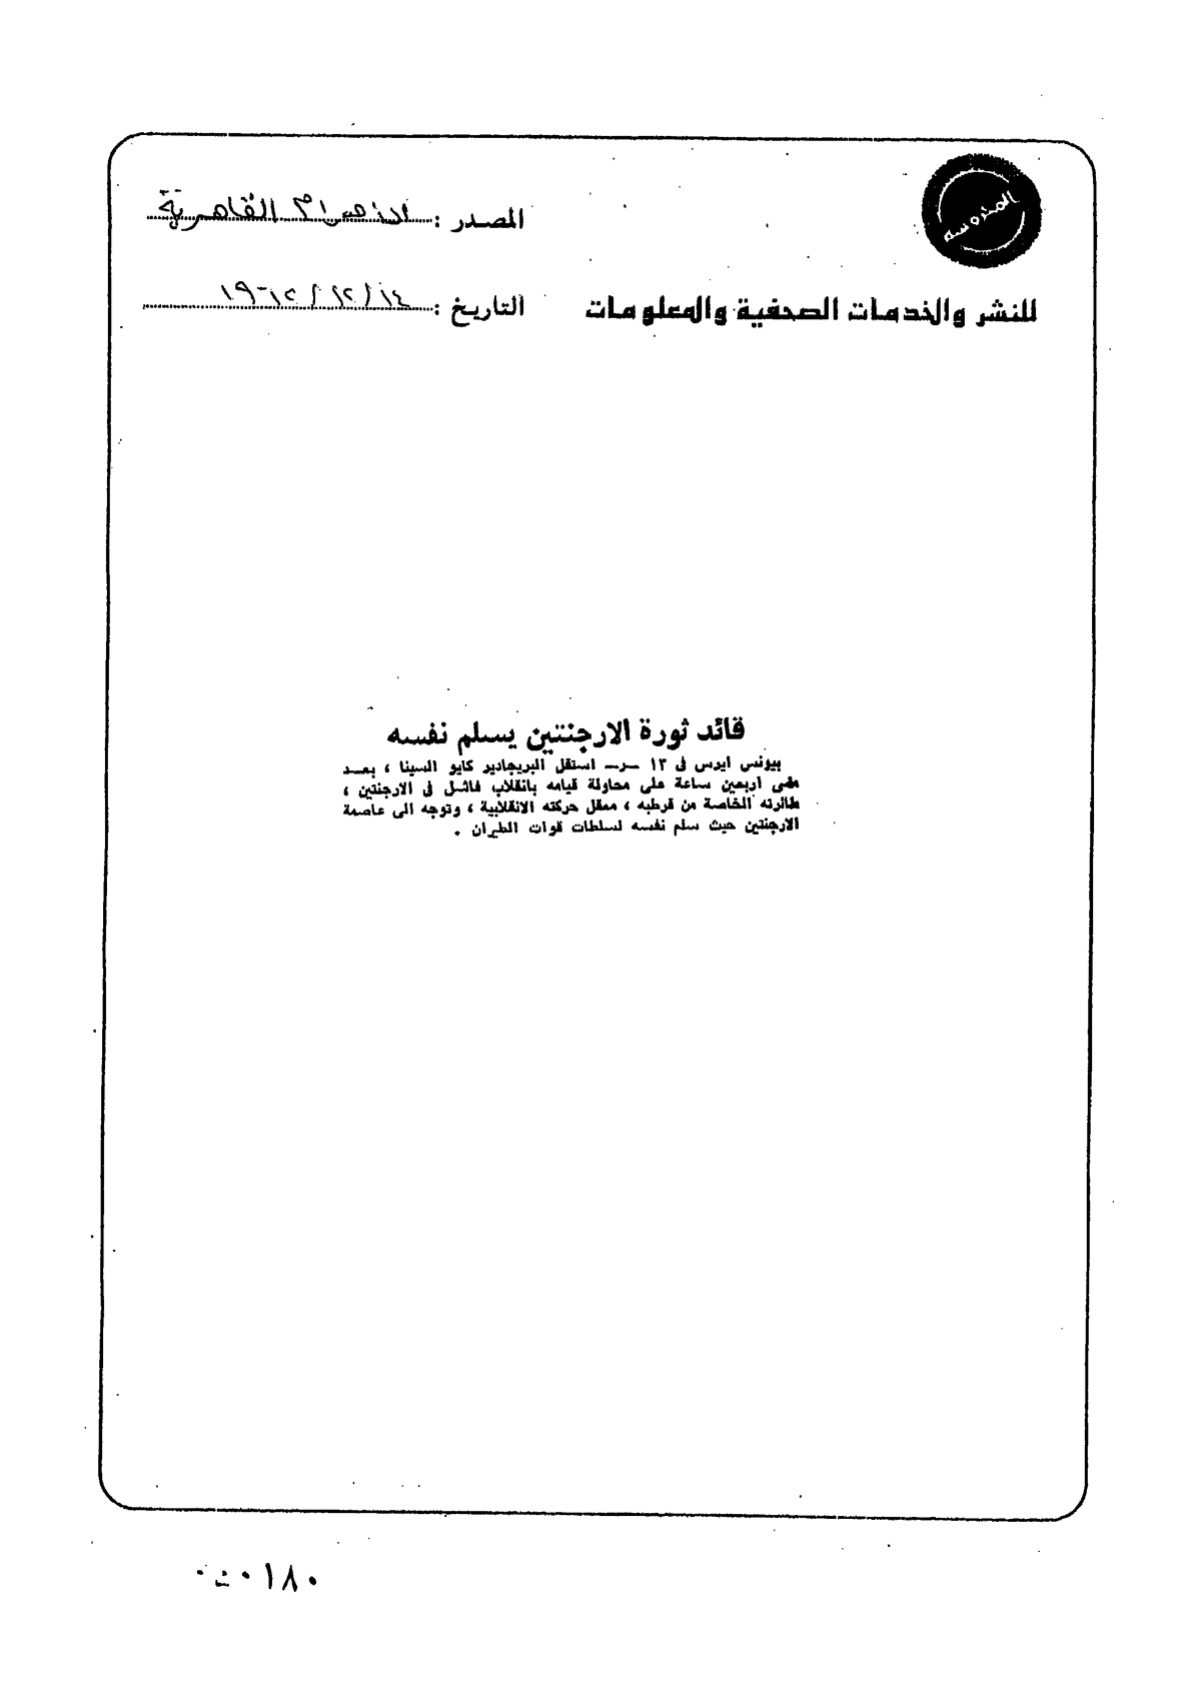 المحروسة
المصدر : الاهرام القاهرية
للنشر والخدمات الصحفية والمعلومات
التاريخ : ١٤/١٢/١٩٦٢
قائد ثورة الارجنتين يسلم نفسه
بيونس ايرس فى ١٣ ـ ر ـ استقل البريجادير كايو السينا ، بعد
مضى اربعين ساعة على محاولة قيامه بانقلاب فاشل فى الارجنتين ،
طائرته الخاصة من قرطبه ، معقل حركته الانقلابية ، وتوجه الى عاصمة
الارجنتين حيث سلم نفسه لسلطات قوات الطيران .